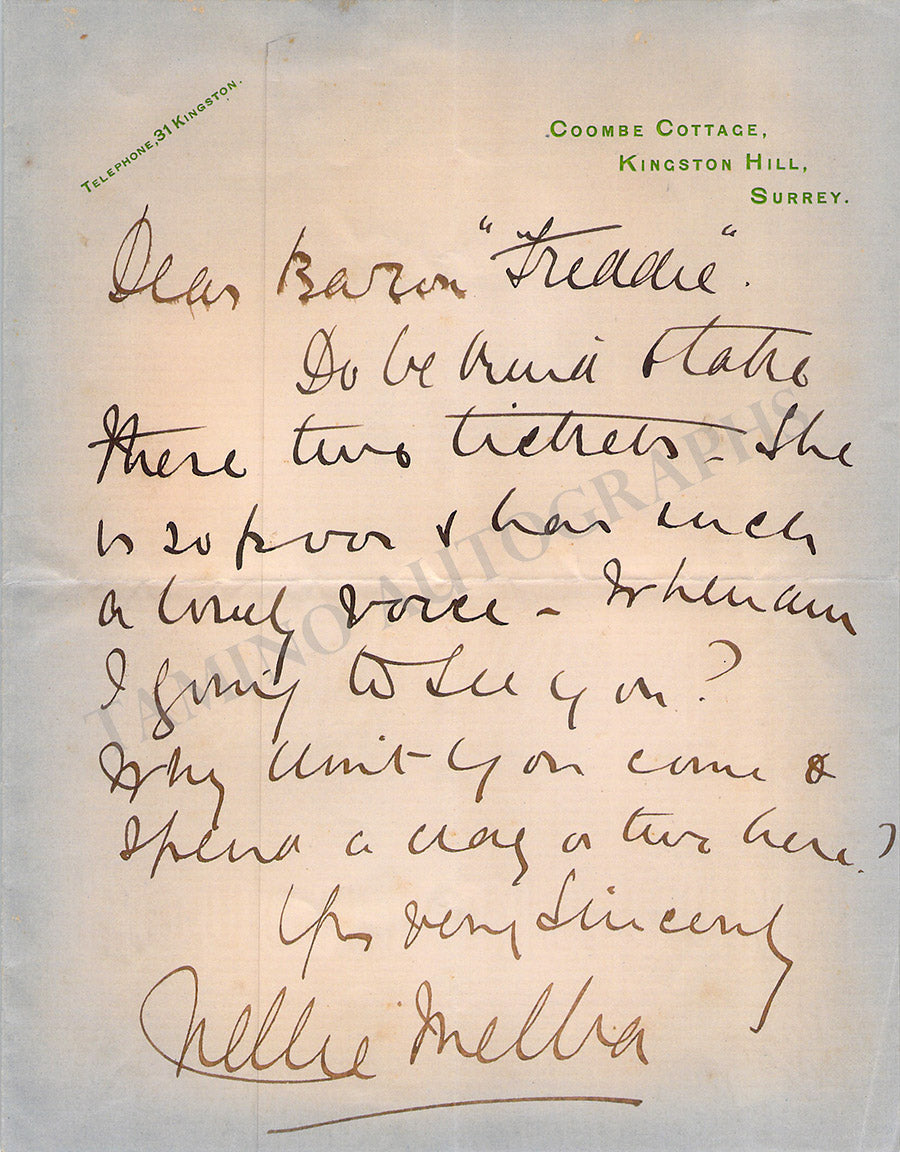 TELEPHONE, 31 KINGSTON.
COOMBE COTTAGE,
KINGSTON HILL,
SURREY.
Dear Baron "Freddie".
Do be kind & take
these two tickets – She
is so poor & has such
a lovely voice – When am
I going to see you?
Why don't you come &
spend a day or two here?
Yrs very Sincerely
Nellie Melba
TAMINO AUTOGRAPHS